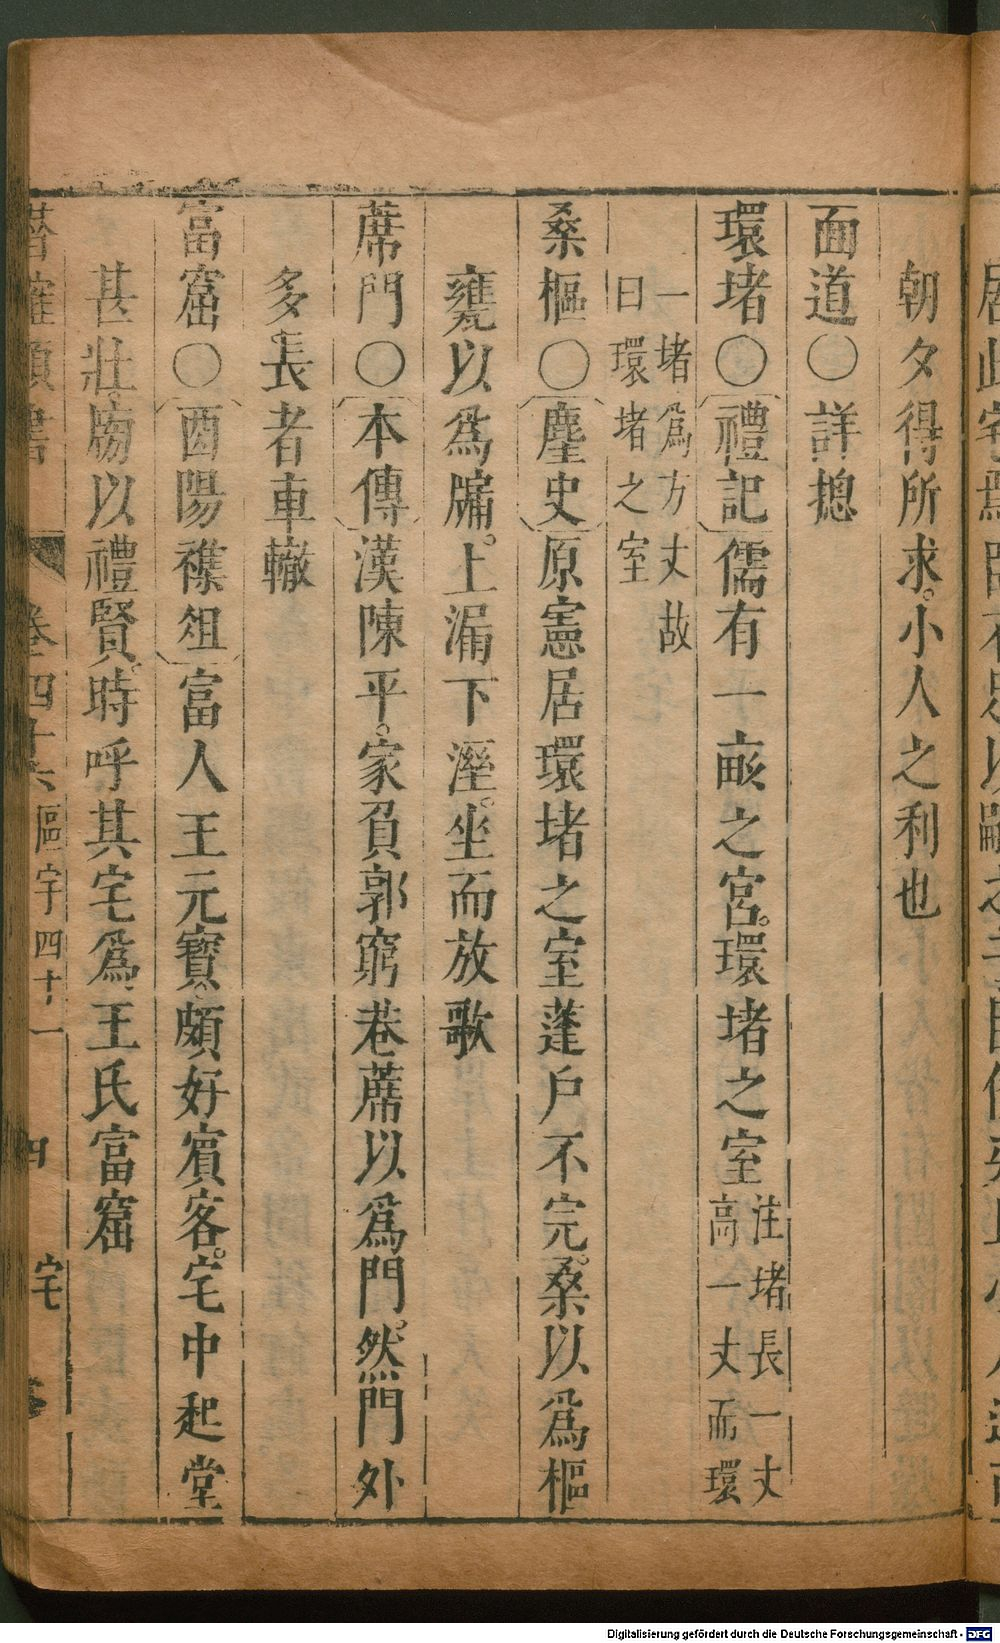 朝夕得所求。小人之利也
面道〇詳摠
環堵〇禮記儒有一畝之宮。環堵之室注堵長一丈高一丈而環
一堵為方丈故曰環堵之室
桑樞〇麈史原憲居環堵之室蓬戶不完。桑以為樞
甕以為牖。上漏下溼。坐而放歌
蓆門〇本傳漢陳平。家負郭窮巷蓆以為門。然門外
多長者車轍
富窟〇酉陽襍俎富人王元寶。頗好賓客。宅中起堂
甚壯麗以禮賢。時呼其宅為王氏富窟
卷四十六 區宇四十一 四 宅
Digitalisierung gefördert durch die Deutsche Forschungsgemeinschaft - DFG